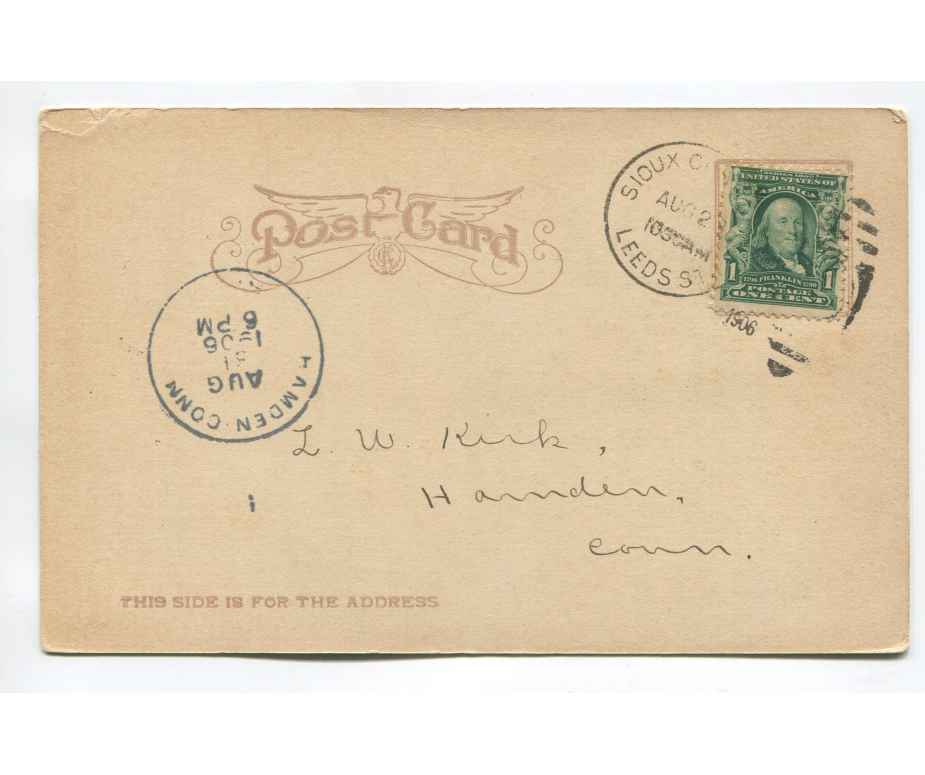 Post Card
SIOUX C
AUG 2
1030AM
LEEDS ST
1906
SERIES 1902
UNITED STATES OF
AMERICA
1 1706 FRANKLIN 1790 1
POSTAGE
ONE CENT
HAMDEN·CONN
AUG
31
1906
6 PM
L. W. Kirk,
Hamden,
Conn.
THIS SIDE IS FOR THE ADDRESS